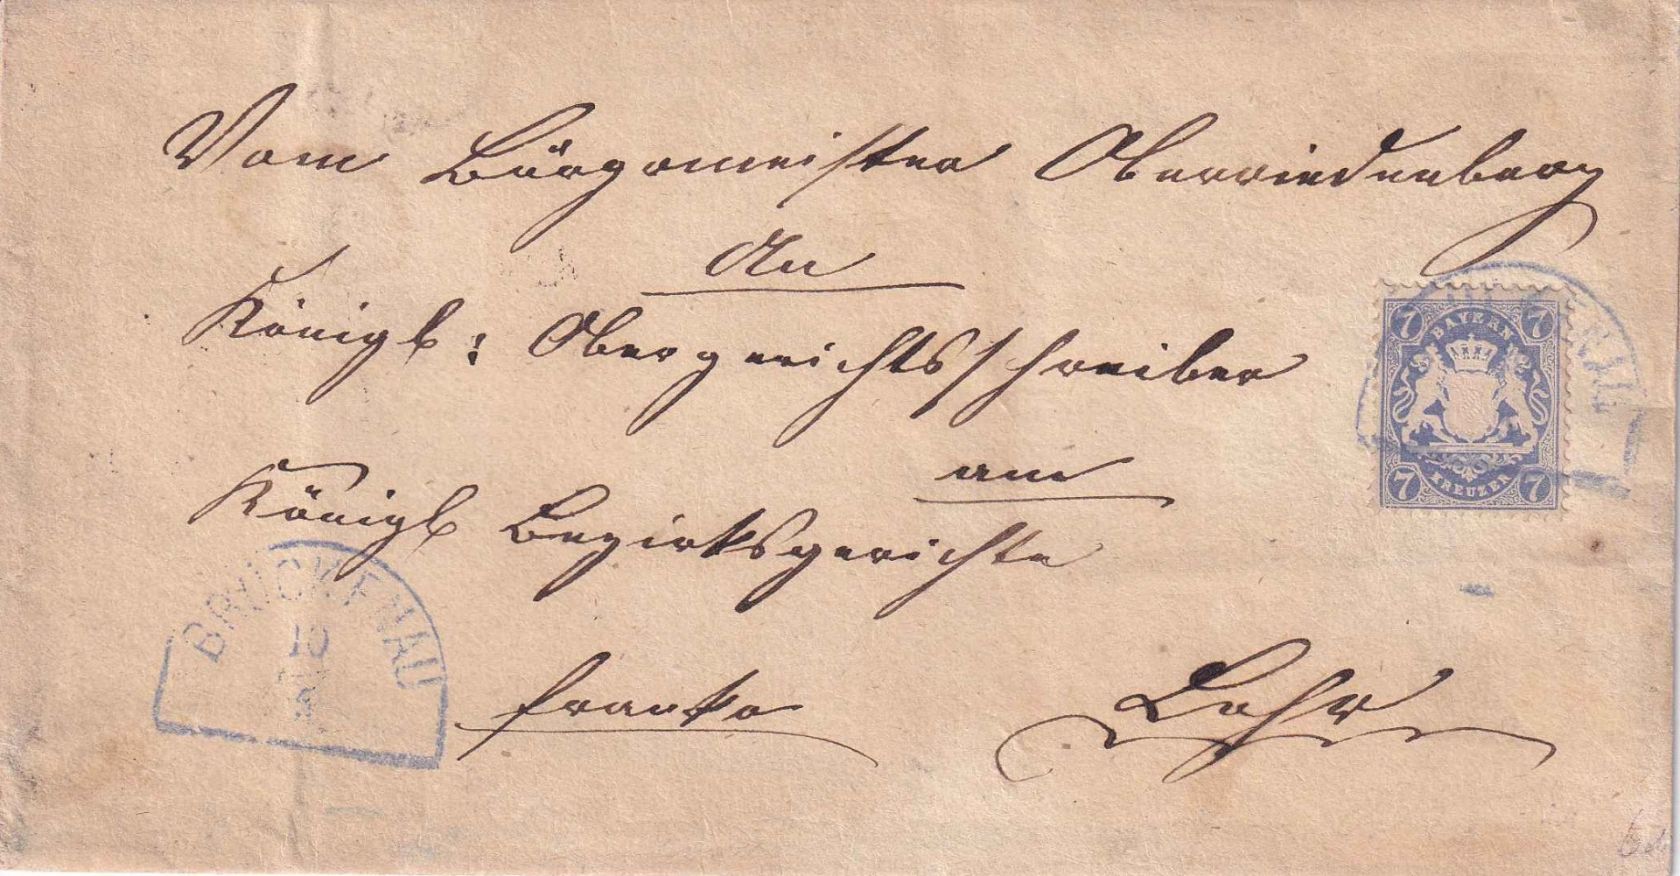 Vom Bürgermeister Oberriedenberg
An
Königl: Obergerichtsschreiber
am
Königl Bezirksgerichte
franko
Lohr
7 BAYERN 7
7 KREUZER 7
BRÜCKENAU
10
BRÜCKENAU